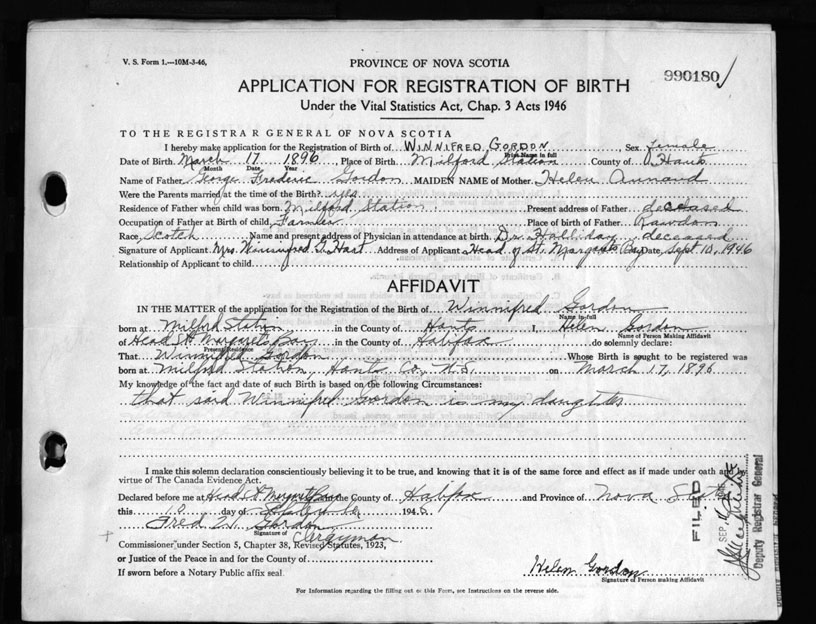 V. S. Form 1.—10M-3-46,
PROVINCE OF NOVA SCOTIA
990180
APPLICATION FOR REGISTRATION OF BIRTH
Under the Vital Statistics Act, Chap. 3 Acts 1946
TO THE REGISTRAR GENERAL OF NOVA SCOTIA
I hereby make application for the Registration of Birth of WINNIFRED GORDON, Sex female
Print Name in full
Date of Birth March 17 1896, Place of Birth Milford Station County of Hants
Month Date Year
Name of Father George Frederic Gordon MAIDEN NAME of Mother Helen Annand
Were the Parents married at the time of the Birth? yes
Residence of Father when child was born Milford Station Present address of Father deceased
Occupation of Father at Birth of child, Farmer Place of birth of Father Rawdon
Race, Scotch Name and present address of Physician in attendance at birth, Dr. Halliday, deceased
Signature of Applicant Mrs. Winnifred G. Hart Address of Applicant Head of St. Margarets Bay Date, Sept 10, 1946
Relationship of Applicant to child
AFFIDAVIT
IN THE MATTER of the application for the Registration of the Birth of Winnifred Gordon
Name in full
born at Milford Station in the County of Hants I, Helen Gordon
Name of Person Making Affidavit
of Head St. Margaret's Bay in the County of Halifax do solemnly declare:
Present Residence
That Winnifred Gordon Whose Birth is sought to be registered was
born at Milford Station, Hants Co., N.S. on March 17, 1896
My knowledge of the fact and date of such Birth is based on the following Circumstances:
that said Winnifred Gordon is my daughter
I make this solemn declaration conscientiously believing it to be true, and knowing that it is of the same force and effect as if made under oath and by
virtue of The Canada Evidence Act.
Declared before me at Head St. Margarets Bay in the County of Halifax and Province of Nova Scotia
this 10 day of September 1946
Fred W. Gordon
Signature of Clergyman
Commissioner under Section 5, Chapter 38, Revised Statutes, 1923,
or Justice of the Peace in and for the County of
If sworn before a Notary Public affix seal.
Helen Gordon
Signature of Person making Affidavit
FILED
SEP
Deputy Registrar General
For Information regarding the filling out of this Form, see Instructions on the reverse side.